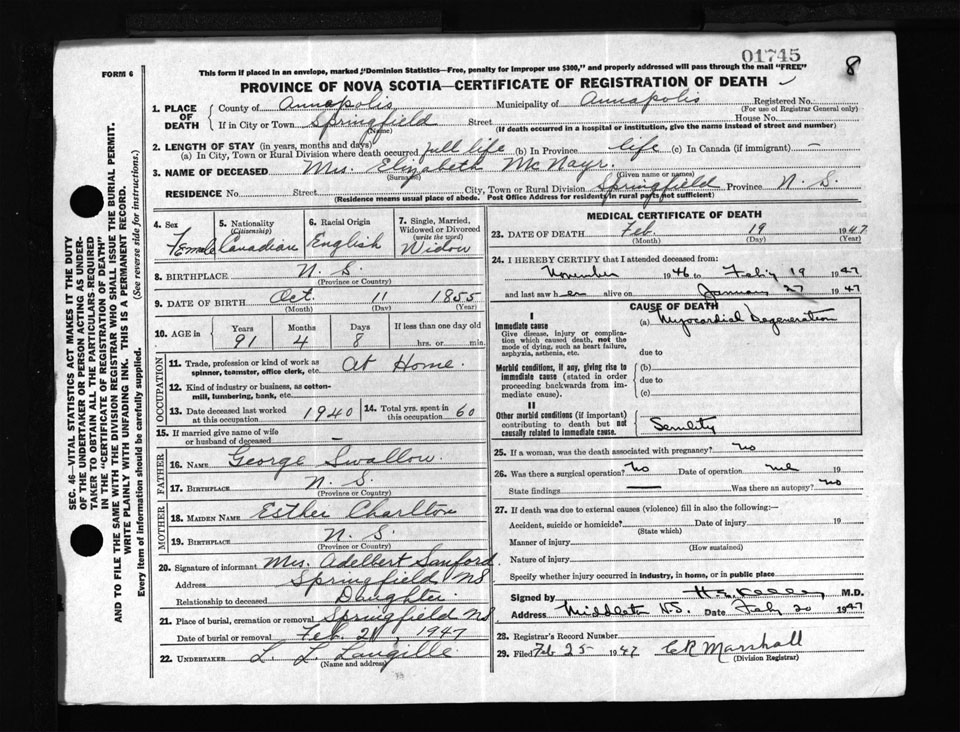 01745
8
FORM 6
This form if placed in an envelope, marked "Dominion Statistics—Free, penalty for improper use $300," and properly addressed will pass through the mail "FREE"
PROVINCE OF NOVA SCOTIA—CERTIFICATE OF REGISTRATION OF DEATH
SEC. 46—VITAL STATISTICS ACT MAKES IT THE DUTY
OF THE UNDERTAKER OR PERSON ACTING AS UNDER-
TAKER TO OBTAIN ALL THE PARTICULARS REQUIRED
IN THE "CERTIFICATE OF REGISTRATION OF DEATH"
AND TO FILE THE SAME WITH THE DIVISION REGISTRAR WHO SHALL ISSUE THE BURIAL PERMIT.
WRITE PLAINLY WITH UNFADING INK. THIS IS A PERMANENT RECORD.
Every item of information should be carefully supplied. (See reverse side for instructions.)
1. PLACE OF DEATH County of Annapolis Municipality of Annapolis Registered No.
(For use of Registrar General only)
If in City or Town Springfield Street House No.
(Name) (If death occurred in a hospital or institution, give the name instead of street and number)
2. LENGTH OF STAY (in years, months and days)
(a) In City, Town or Rural Division where death occurred full life (b) In Province life (c) In Canada (if immigrant) —
3. NAME OF DECEASED Mrs. Elizabeth McNayr.
(Surname) (Given name or names)
RESIDENCE No Street City, Town or Rural Division Springfield Province N. S.
(Residence means usual place of abode. Post Office Address for residents in rural parts not sufficient)
4. Sex
Female
5. Nationality
(Citizenship)
Canadian
6. Racial Origin
English
7. Single, Married,
Widowed or Divorced
(write the word)
Widow
8. BIRTHPLACE N. S.
(Province or Country)
9. DATE OF BIRTH Oct. 11 1855
(Month) (Day) (Year)
10. AGE in Years Months Days If less than one day old
91 4 8 hrs. or min.
OCCUPATION
11. Trade, profession or kind of work as
spinner, teamster, office clerk, etc. At Home.
12. Kind of industry or business, as cotton-
mill, lumbering, bank, etc.
13. Date deceased last worked
at this occupation 1940
14. Total yrs. spent in
this occupation 60
15. If married give name of wife
or husband of deceased —
FATHER
16. NAME George Swallow.
17. BIRTHPLACE N. S.
(Province or Country)
MOTHER
18. MAIDEN NAME Esther Charlton
19. BIRTHPLACE N. S.
(Province or Country)
20. Signature of informant Mrs. Adelbert Sanford.
Address Springfield NS
Relationship to deceased Daughter.
21. Place of burial, cremation or removal Springfield NS
Date of burial or removal Feb. 21, 1947
22. UNDERTAKER L. L. Langille.
(Name and address)
MEDICAL CERTIFICATE OF DEATH
23. DATE OF DEATH Feb. 19 1947
(Month) (Day) (Year)
24. I HEREBY CERTIFY that I attended deceased from:
November 1946 to Feb'y 19 1947
and last saw her alive on January 27 1947
CAUSE OF DEATH
I
Immediate cause
Give disease, injury or complica-
tion which caused death, not the
mode of dying, such as heart failure,
asphyxia, asthenia, etc.
(a) Myocardial Degeneration
due to
Morbid conditions, if any, giving rise to
immediate cause (stated in order
proceeding backwards from im-
mediate cause).
(b)
due to
(c)
II
Other morbid conditions (if important)
contributing to death but not
causally related to immediate cause.
Senility
25. If a woman, was the death associated with pregnancy? no
26. Was there a surgical operation? no Date of operation 19
State findings — Was there an autopsy? no
27. If death was due to external causes (violence) fill in also the following:—
Accident, suicide or homicide? Date of injury 19
(State which)
Manner of injury
(How sustained)
Nature of injury
Specify whether injury occurred in industry, in home, or in public place
Signed by H. E. Kelley M.D.
Address Middleton N.S. Date Feb 20 1947
28. Registrar's Record Number
29. Filed Feb 25 1947 C R Marshall
(Division Registrar)